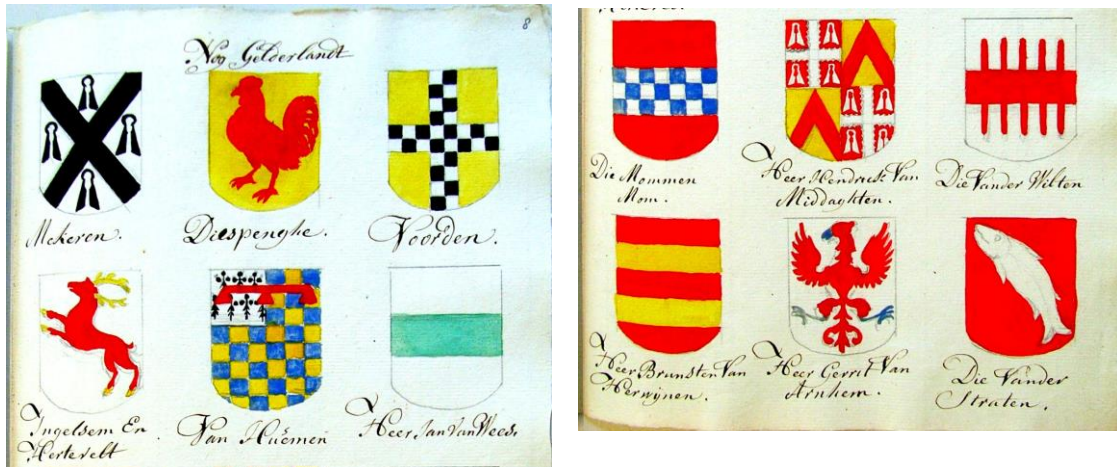 8
Nog Gelderlandt
Mekeren.
Diespenghe.
Voorden.
Ingelsem En
Hertevelt
Van Huëmen
Heer Jan Van Wees.
Die Mommen
Mom.
Heer Hendrick Van
Middaghten.
Die Vander Wilten
Heer Brunsten Van
Herwijnen.
Heer Gerrit Van
Arnhem.
Die Vander
Straten.